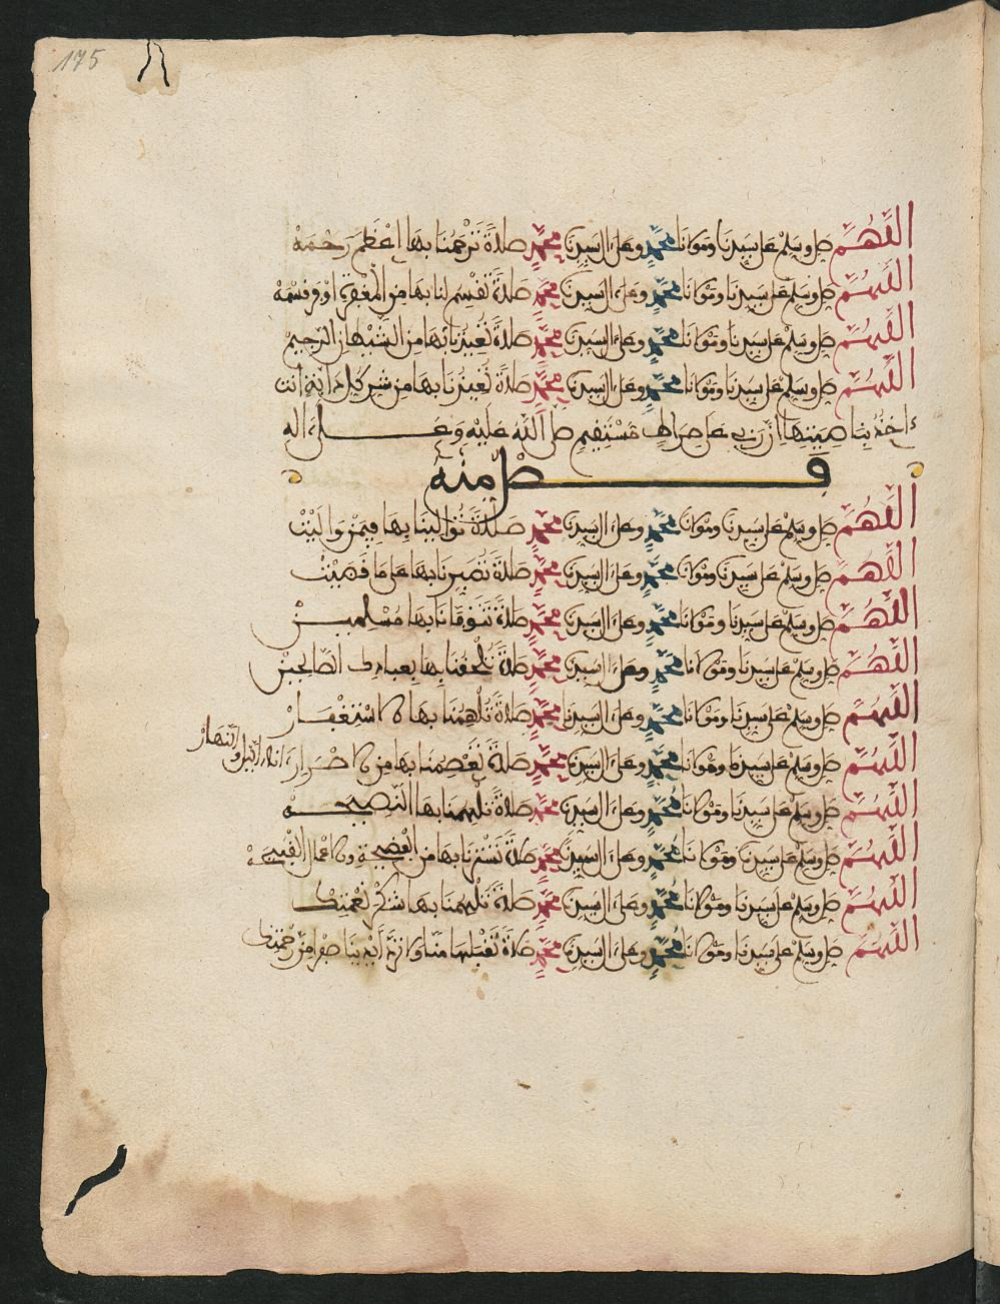 175
اللهم صل وسلم على سيدنا ومولانا محمد وعلى ال سيدنا محمد صلاة ترحمنا بها اعظم رحمة
اللهم صل وسلم على سيدنا ومولانا محمد وعلى ال سيدنا محمد صلاة تقسم لنا بها من المغفرة اوفر قسمة
اللهم صل وسلم على سيدنا ومولانا محمد وعلى ال سيدنا محمد صلاة تعيذنا بها من الشيطان الرجيم
اللهم صل وسلم على سيدنا ومولانا محمد وعلى ال سيدنا محمد صلاة تعيذنا بها من شر كل دابة انت
ءاخذ بناصيتها ان ربي على صراط مستقيم صلى الله عليه وعلى اله
فصل منه
اللهم صل وسلم على سيدنا ومولانا محمد وعلى ال سيدنا محمد صلاة توالينا بها فيمن واليت
اللهم صل وسلم على سيدنا ومولانا محمد وعلى ال سيدنا محمد صلاة تصبرنا بها على ما قضيت
اللهم صل وسلم على سيدنا ومولانا محمد وعلى ال سيدنا محمد صلاة تتوفانا بها مسلمين
اللهم صل وسلم على سيدنا ومولانا محمد وعلى ال سيدنا محمد صلاة تلحقنا بها بعبادك الصالحين
اللهم صل وسلم على سيدنا ومولانا محمد وعلى ال سيدنا محمد صلاة تلهمنا بها الاستغفار
اللهم صل وسلم على سيدنا ومولانا محمد وعلى ال سيدنا محمد صلاة تعصمنا بها من الاضرار ءاناء اليل والنهار
اللهم صل وسلم على سيدنا ومولانا محمد وعلى ال سيدنا محمد صلاة تلهمنا بها النصيحة
اللهم صل وسلم على سيدنا ومولانا محمد وعلى ال سيدنا محمد صلاة تسترنا بها من الفضيحة والاعمال القبيحة
اللهم صل وسلم على سيدنا ومولانا محمد وعلى ال سيدنا محمد صلاة تلهمنا بها شكر نعمتك
اللهم صل وسلم على سيدنا ومولانا محمد وعلى ال سيدنا محمد صلاة تقبلها منا ولا ترد ايدينا صفرا من رحمتك